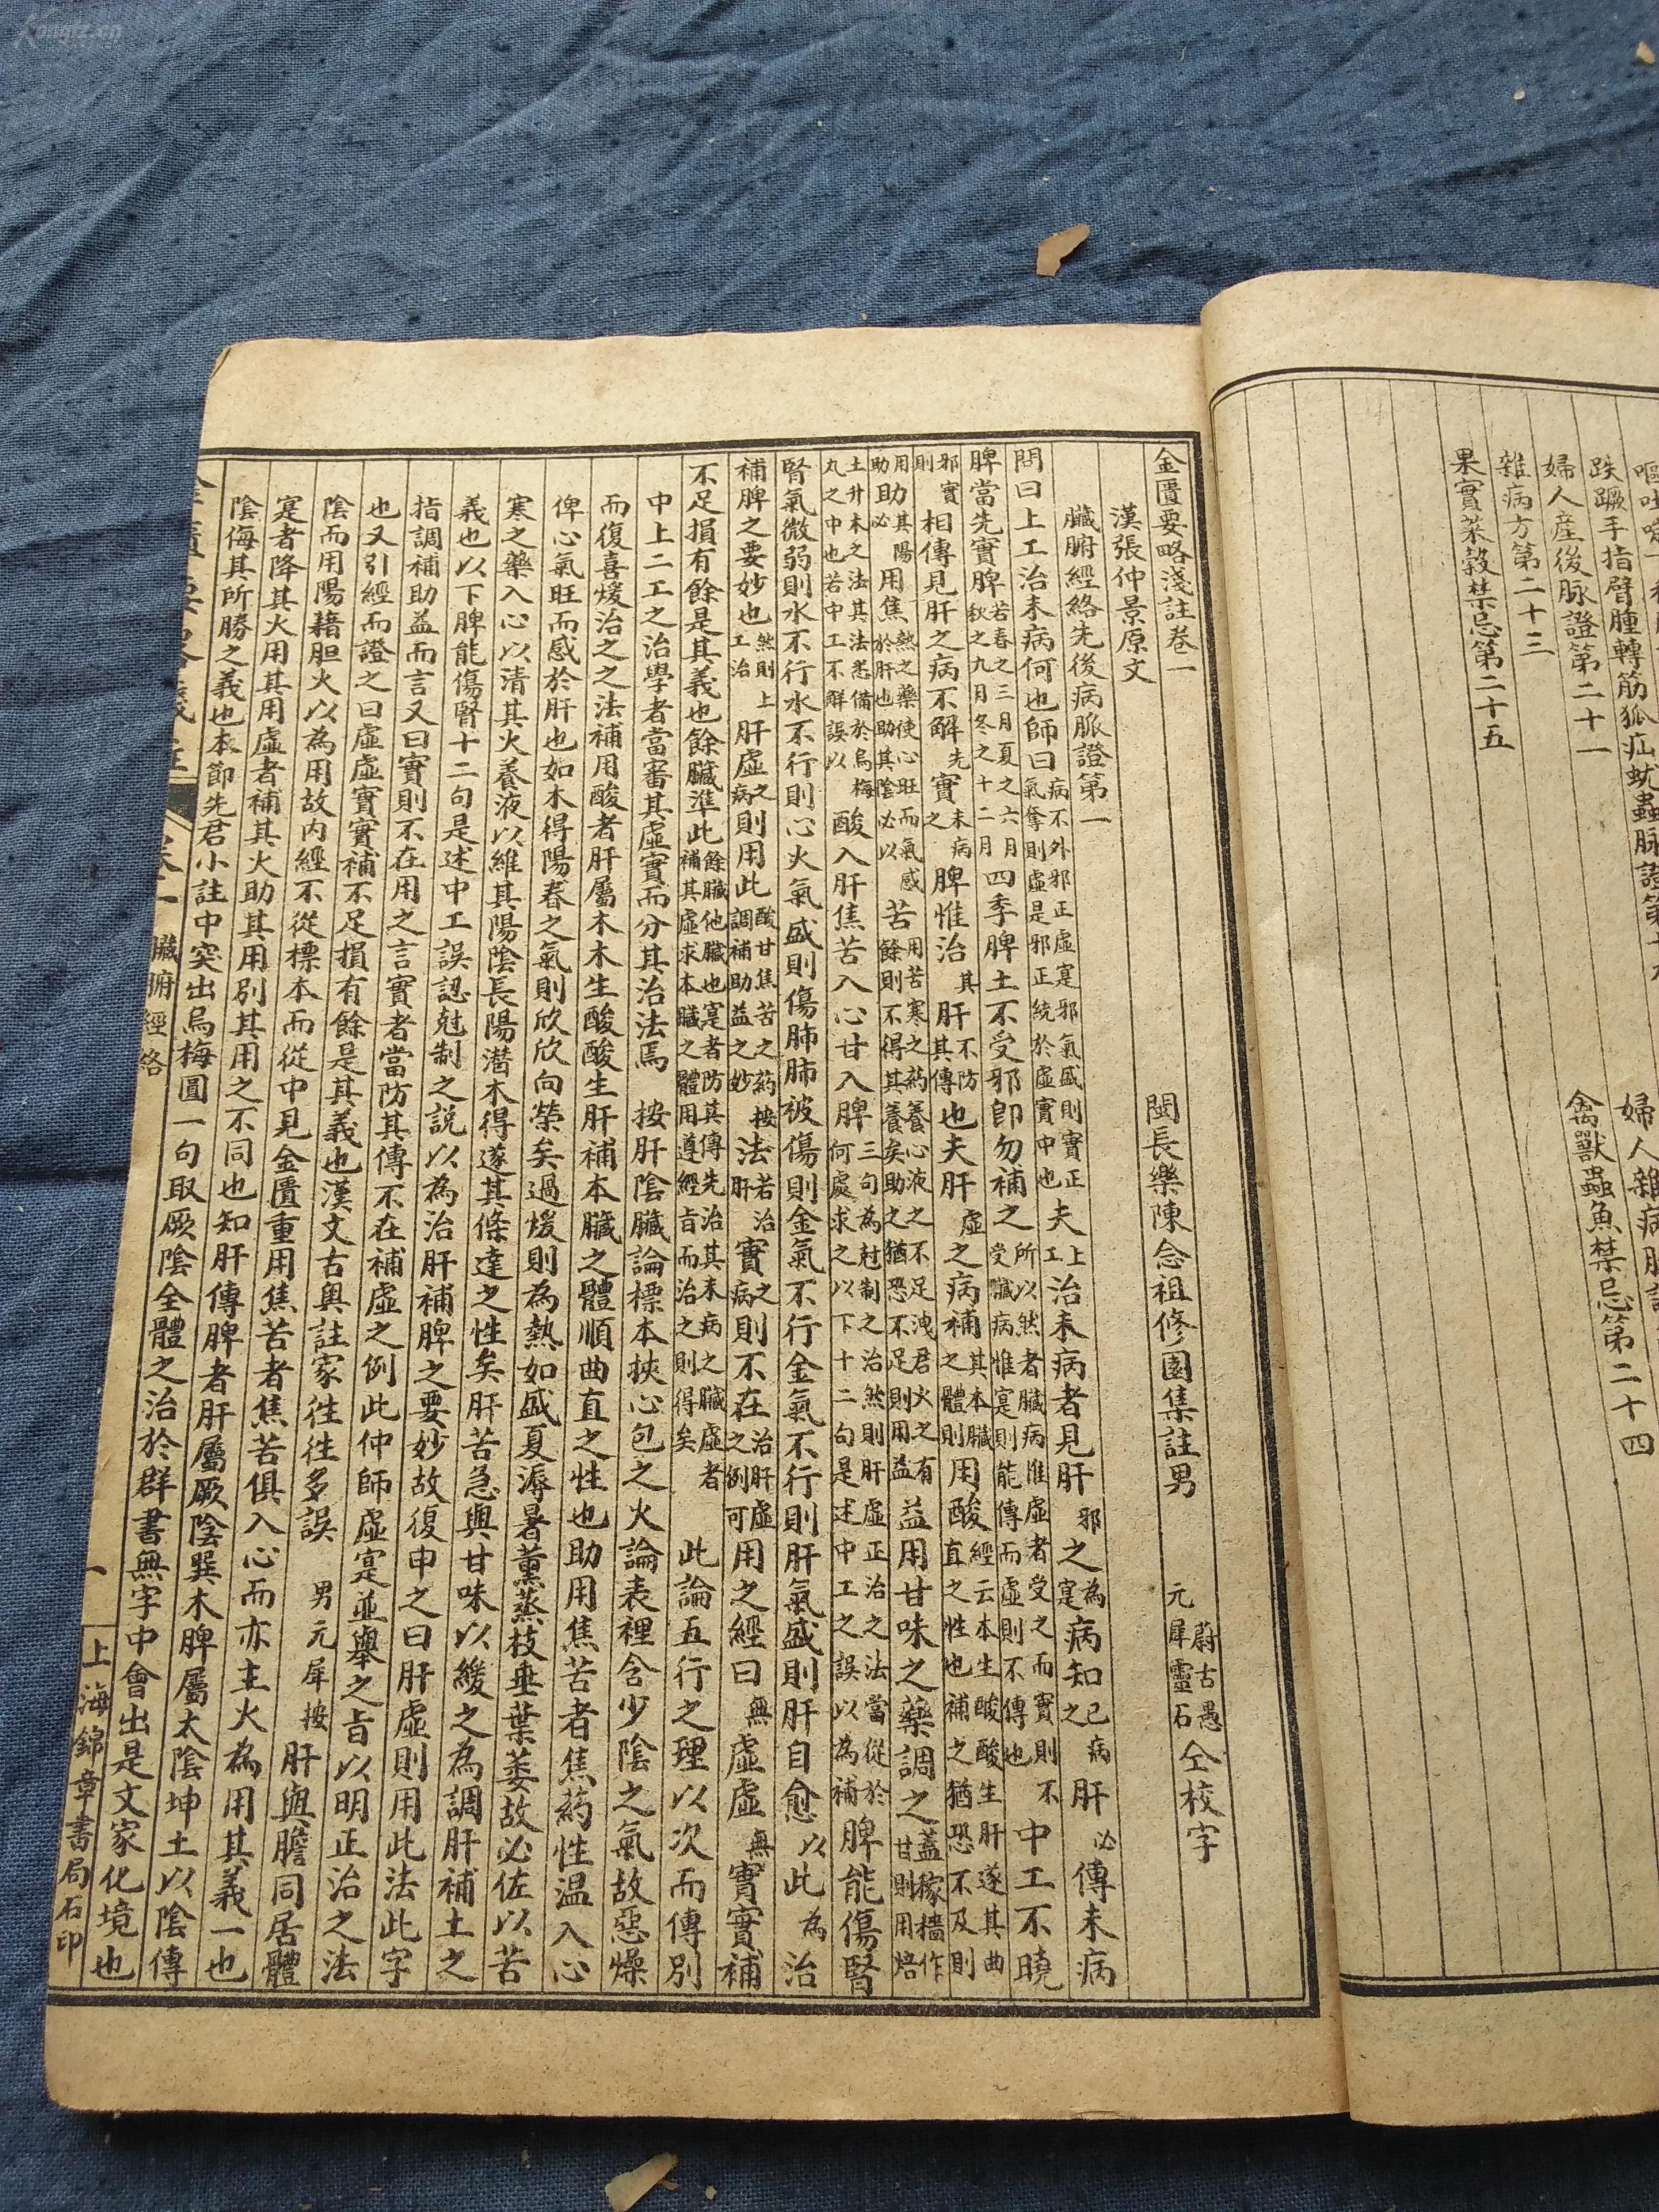 嘔吐
跌蹶手指臂腫轉筋狐疝蚘蟲脉證第十九
婦人產後脉證第二十一
婦人雜病脉證
雜病方第二十三
禽獸蟲魚禁忌第二十四
果實菜穀禁忌第二十五
金匱要略淺註卷一
漢張仲景原文 閩長樂陳念祖修園集註男 蔚古愚 元犀靈石 仝校字
臟腑經絡先後病脈證第一
問曰上工治未病何也師曰病不外邪正虛寔邪氣盛則實正氣奪則虛是邪正統於虛實中也夫上工治未病者見肝邪之為寔病知之已病肝必傳未病
脾當先實脾若春之三月夏之六月秋之九月冬之十二月四季脾土不受邪即勿補之所以然者臟病惟虛者受之而實則不受臟病惟寔則能傳而虛則不傳也中工不曉
邪實則相傳見肝之病不解先實未病之脾惟治其肝不防其傳也夫肝虛之病補其本臟之體則用酸經云本生酸酸生肝遂其曲直之性也補之猶恐不及則
助用焦熱之藥使心旺而氣感於肝也助其陰必以苦用苦寒之葯養心液之不足洩君火之有餘則不得其養矣助之猶恐不足則用益益用甘味之藥調之蓋稼穡作甘則用焙
土升木之法其法悉備於烏梅丸之中也若中工不解誤以酸入肝焦苦入心甘入脾三句為尅制之治然則肝虛正治之法當從於何處求之以下十二句是述中工之誤以為補脾能傷腎
腎氣微弱則水不行水不行則心火氣盛則傷肺肺被傷則金氣不行金氣不行則肝氣盛則肝自愈以此為治
補脾之要妙也然則上工治肝虛之病則用此酸甘焦苦之葯按調補助益之妙法若治肝實之病則不在治肝虛之例可用之經曰無虛虛無實實補
不足損有餘是其義也餘臟準此餘臟他臟也寔者防其傳先治其未病之臟虛者補其虛求本臟之體用遵經旨而治之則得矣 此論五行之理以次而傳別
中上二工之治學者當審其虛實而分其治法焉 按肝陰臟論標本挾心包之火論表裡含少陰之氣故惡燥
而復喜煖治之之法補用酸者肝屬木木生酸酸生肝補本臟之體順曲直之性也助用焦苦者焦葯性温入心
俾心氣旺而感於肝也如木得陽春之氣則欣欣向榮矣過煖則為熱如盛夏溽暑薰蒸枝垂葉萎故必佐以苦
寒之藥入心以清其火養液以維其陽陰長陽潛木得遂其條達之性矣肝苦急與甘味以緩之為調肝補土之
義也以下脾能傷腎十二句是述中工誤認尅制之說以為治肝補脾之要妙故復申之曰肝虛則用此法此字
指調補助益而言又曰實則不在用之言實者當防其傳不在補虛之例此仲師虛寔並舉之旨以明正治之法
也又引經而證之曰虛虛實實補不足損有餘是其義也漢文古奧註家徃徃多誤 男元犀按肝與膽同居體
陰而用陽藉胆火以為用故内經不從標本而從中見金匱重用焦苦者焦苦俱入心而亦主火為用其義一也
寔者降其火用其用虛者補其火助其用別其用之不同也知肝傳脾者肝屬厥陰巽木脾屬太陰坤土以陰傳
陰侮其所勝之義也本節先君小註中突出烏梅圓一句取厥陰全體之治於群書無字中會出是文家化境也
臟腑經絡 一 上海錦章書局石印